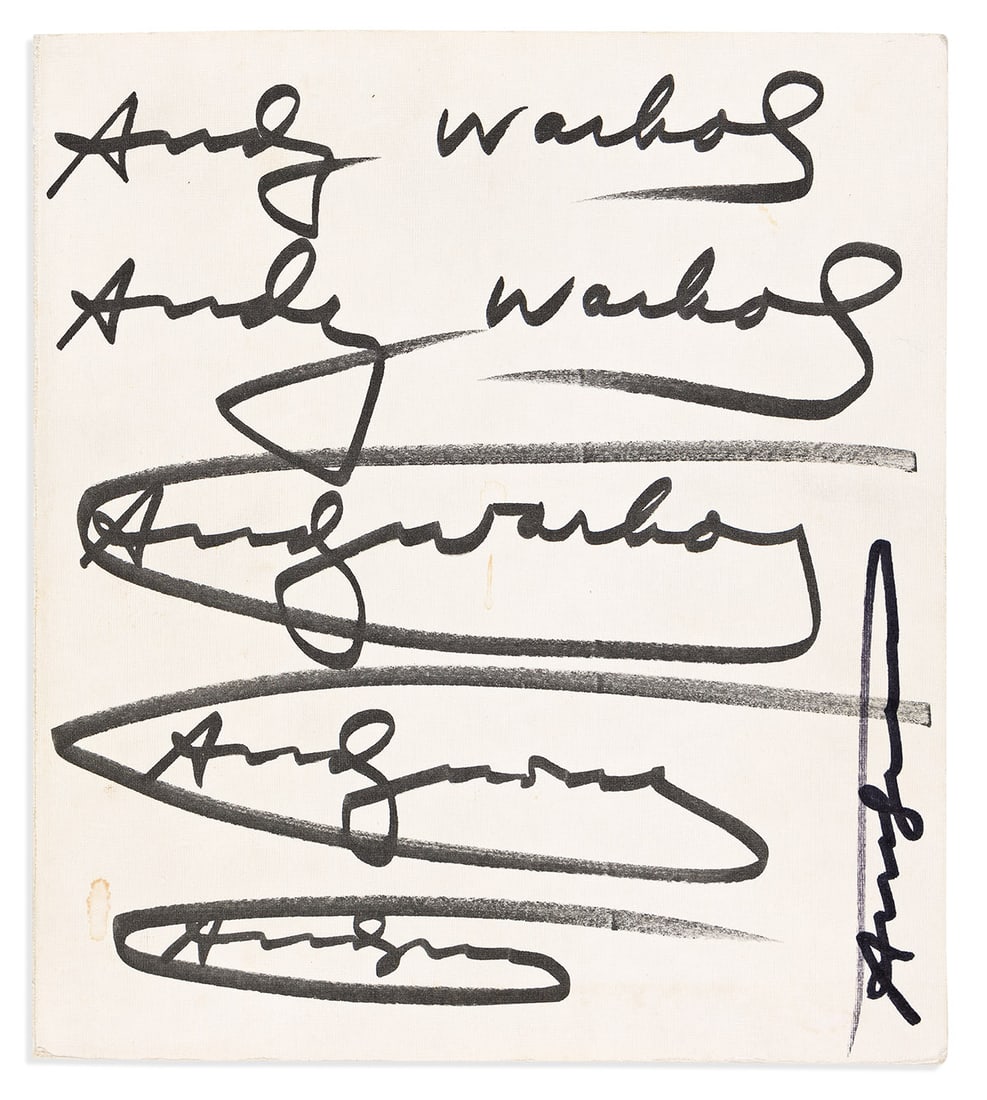 Andy Warhol
Andy Warhol
Andy Warho
Andy
Andy
Andy